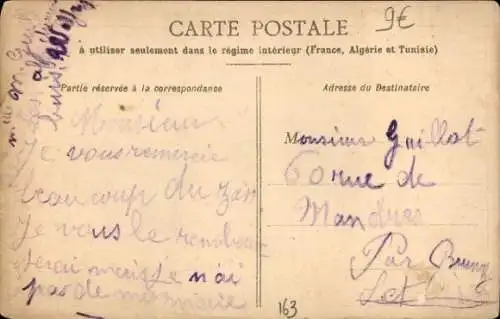 CARTE POSTALE
9€
à utiliser seulement dans le régime intérieur (France, Algérie et Tunisie)
Partie réservée à la correspondance
Adresse du Destinataire
Monsieur
Je vous remercie
beaucoup du
Je vous le
serai mais Je n'ai
pas de monnaie
Monsieur Guillot
6 rue de
Mandres
Par Brunoy
163